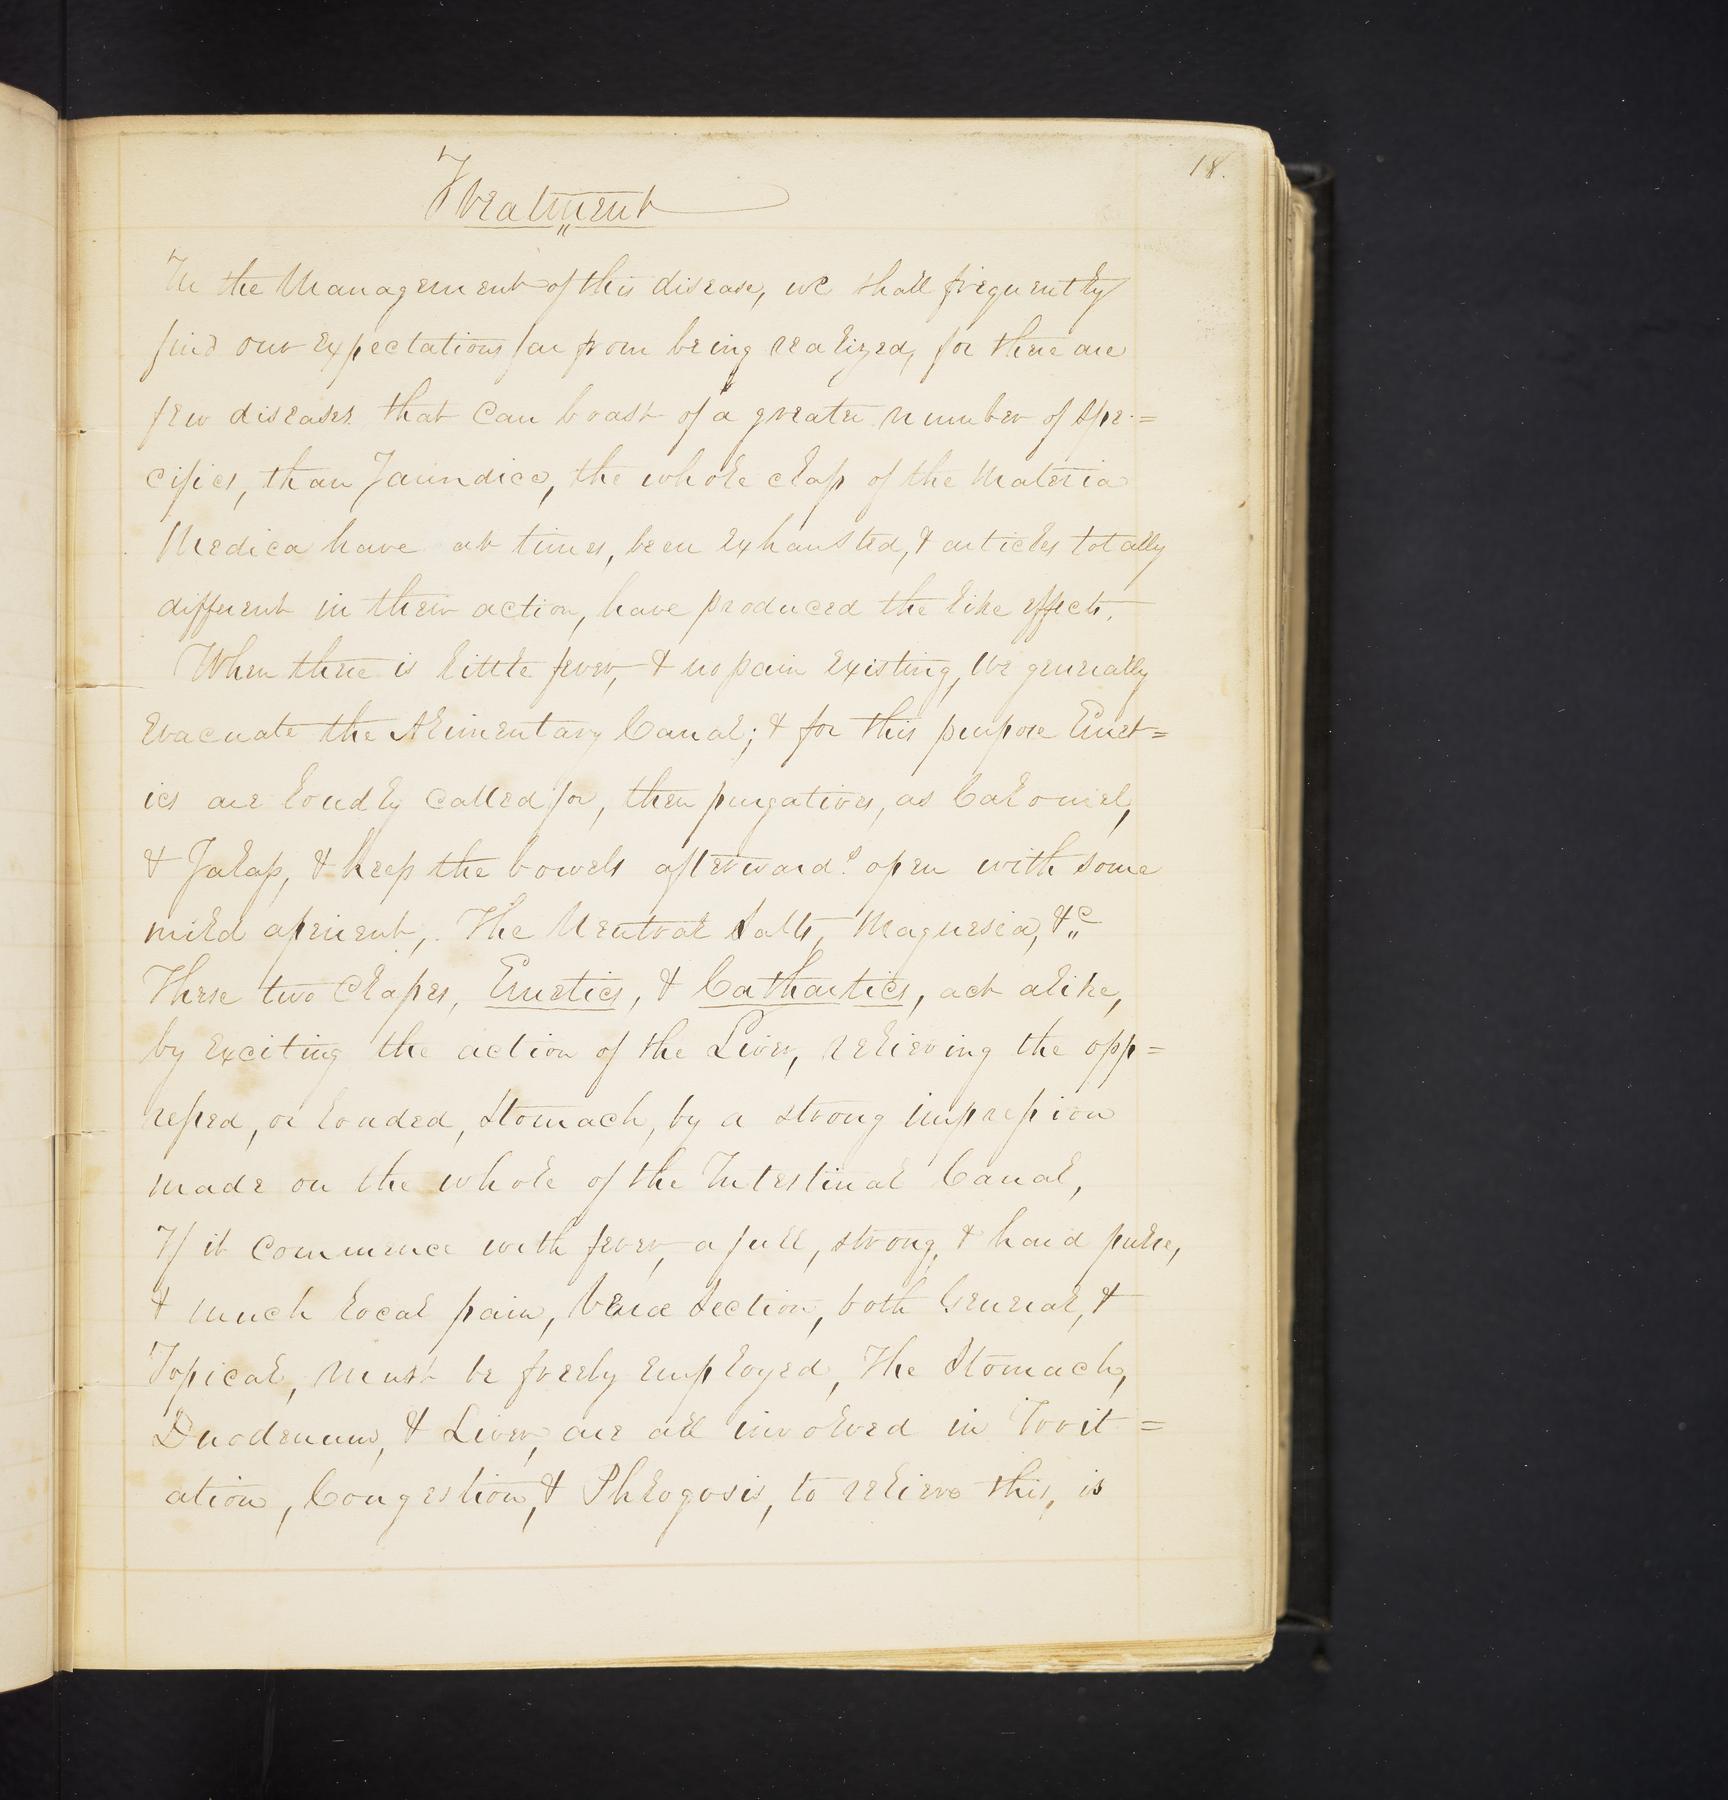 18.
Treatment
In the Management of this disease, we shall frequently
find our Expectations far from being realized, for there are
few diseases that can boast of a greater number of spe-=
cifics, than Jaundice, the whole class of the Materia
Medica have at times, been exhausted, & articles totally
different in their action, have produced the like effects.
When there is little fever, & no pain existing, we generally
Evacuate the Alimentary Canal; & for this purpose Emet=
ics are loudly called for, then purgatives, as Calomel,
& Jalap, & keep the bowels afterwards open with some
mild aperient, The Neutral Salts, Magnesia, &c
These two Classes, Emetics, & Cathartics, act alike,
by exciting the action of the Liver, relieving the opp=
ressed, or loaded, Stomach, by a strong impression
made on the whole of the Intestinal Canal,
If it commence with fever, a full, strong, & hard pulse,
& much local pain, Venæ Section, both General, &
Topical, must be freely employed, The Stomach,
Duodenum, & Liver, are all involved in Irrit=
ation, Congestion, & Phlogosis, to relieve this, is